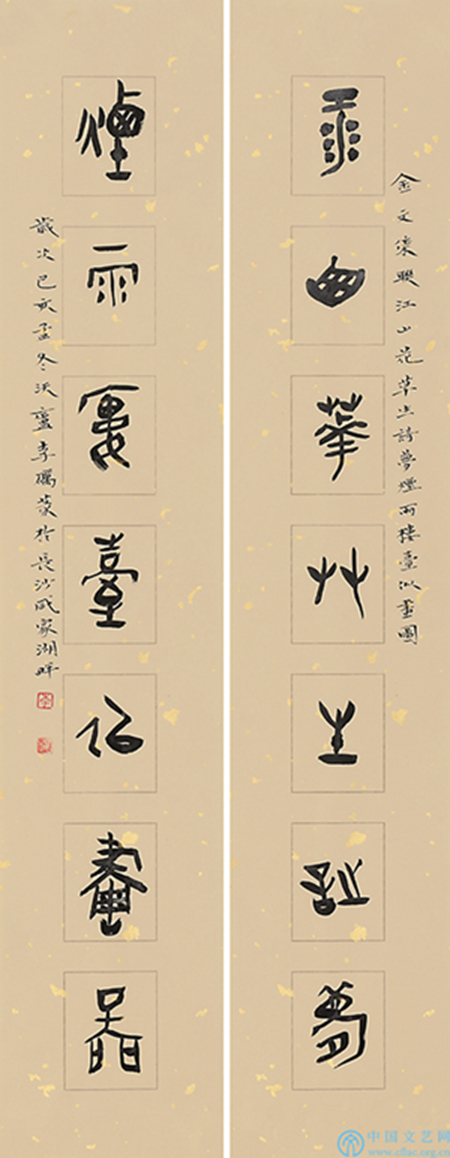 金文集聯江山花草生詩夢煙雨樓臺似畫圖
華艸生詩夢
煙雨樓臺似畫圖
歲次己亥孟冬沃廬李礪篆於長沙咸家湖畔
中国文艺网
www.cflac.org.cn